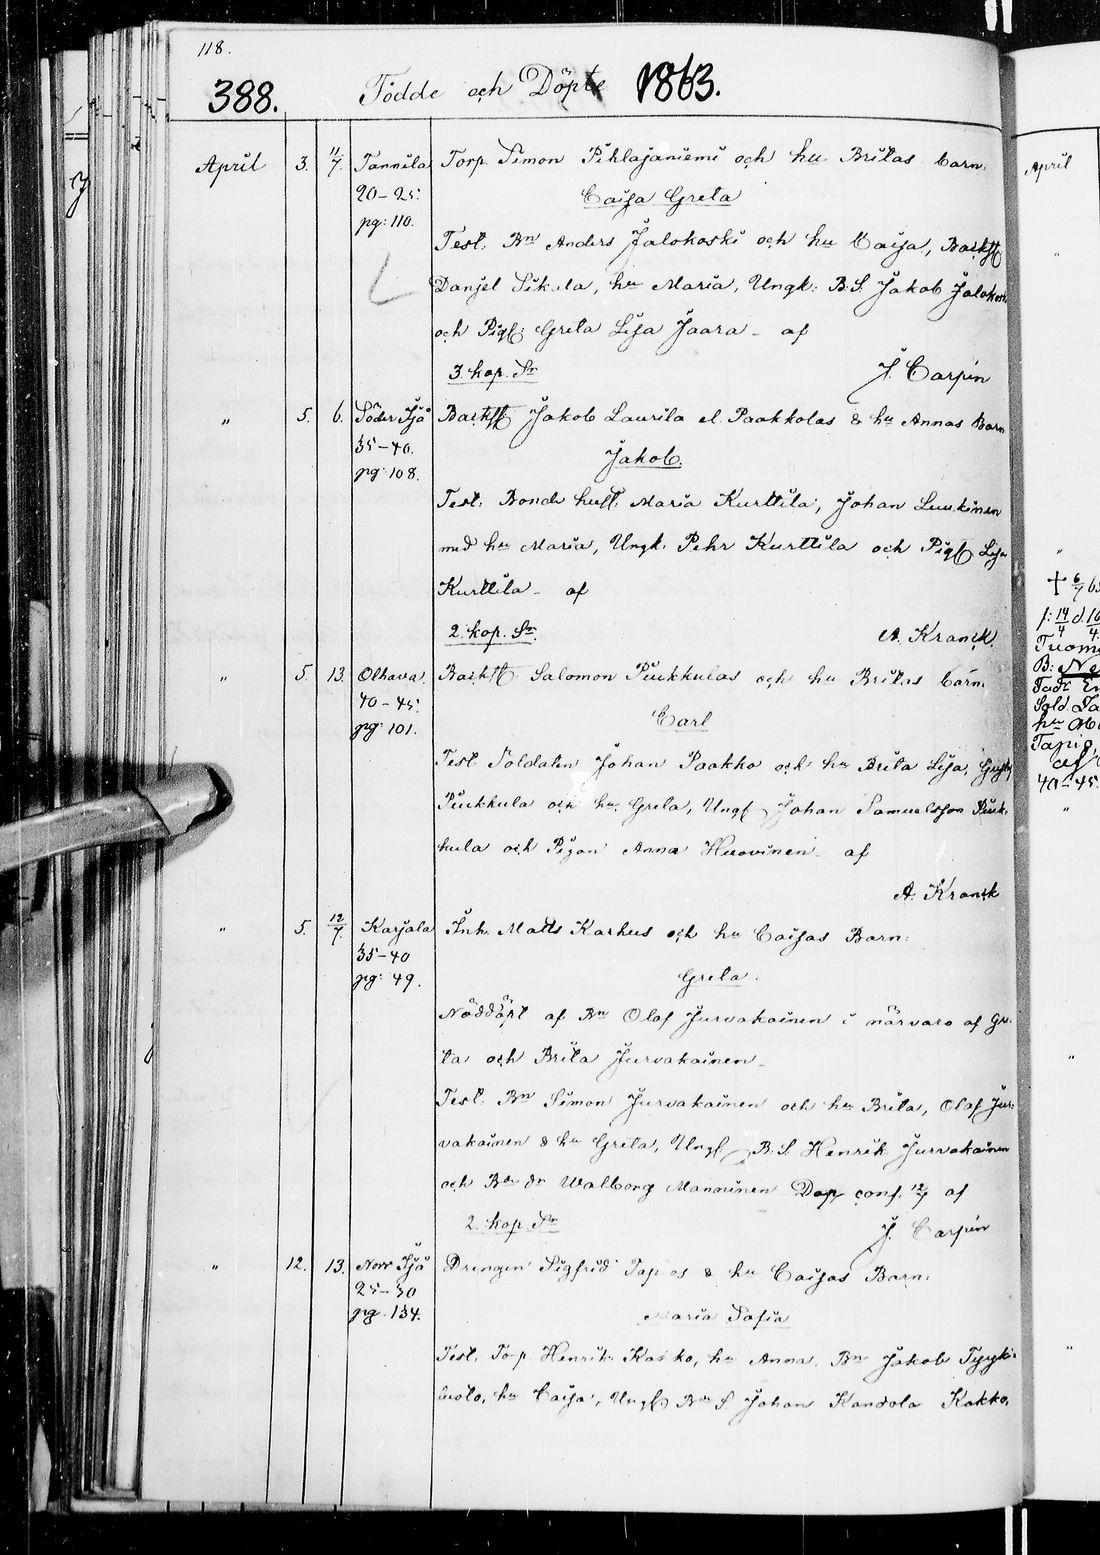 118.
388. Födde och Döpte 1863.
April 3. 11/7. Tannila Torp. Simon Pihlajaniemi och hu Britas barn.
20-25. Caisa Greta
pg: 110.
Test. Bn Anders Jalokoski och hu Caisa, Backst
Danjel Sikala, hu Maria, Ungk: B.S. Jakob Jalokos
och Pig: Greta Lisa Jaara - af
3 kop. Sr J. Carpén
" 5. 6. Söder Ijå Backst Jakob Laurila el. Paakkolas & hu Annas Barn
35-40. Jakob.
pg: 108.
Test. Bonde hust. Maria Kurttila, Johan Luukinen
med hu Maria, Ungk. Pehr Kurttila och Pig Lisa
Kurttila - af
2. kop. Sr. A. Kranck.
" 5. 13. Olhava. Backst. Salomon Piukkulas och hu Britas barn.
40-45. Carl
pg: 101.
Test. Soldaten Johan Paakko och hu Brita Lisa,
Piukkula och hu Greta, Ungk Johan Samuelsson Piuk-
kula och Pigan Anna Huovinen - af
A. Kranck
" 5. 12/7. Karjala Inh. Matts Karhus och hu Caisas Barn:
35-40 Greta.
pg: 49.
Nöddöpt af Bn Olof Jurvakainen i närvaro af Gre-
ta och Brita Jurvakainen -
Test. Bn Simon Jurvakainen och hu Brita, Olof Jur-
vakainen & hu Greta, Ungk B.S. Henrik Jurvakainen
och Bn dr Walborg Manninen Dop conf. 12/7 af
2. kop. Sr J. Carpén
" 12. 13. Norr Ijå Drengen Sigfrid Tapios & hu Caisas Barn:
25-30 Maria Sofia
pg. 134.
Test. Torp Henrik Kaikko, hu Anna. Bn Jakob Tyyki-
luoto, hu Caisa, Ungk Bn S. Johan Kandola Kakko,
April
"
"
f: 14/4 d. 16/4
Tuom
B:
Sold.
hu
Tapio,
af
40-45.
"
"
"